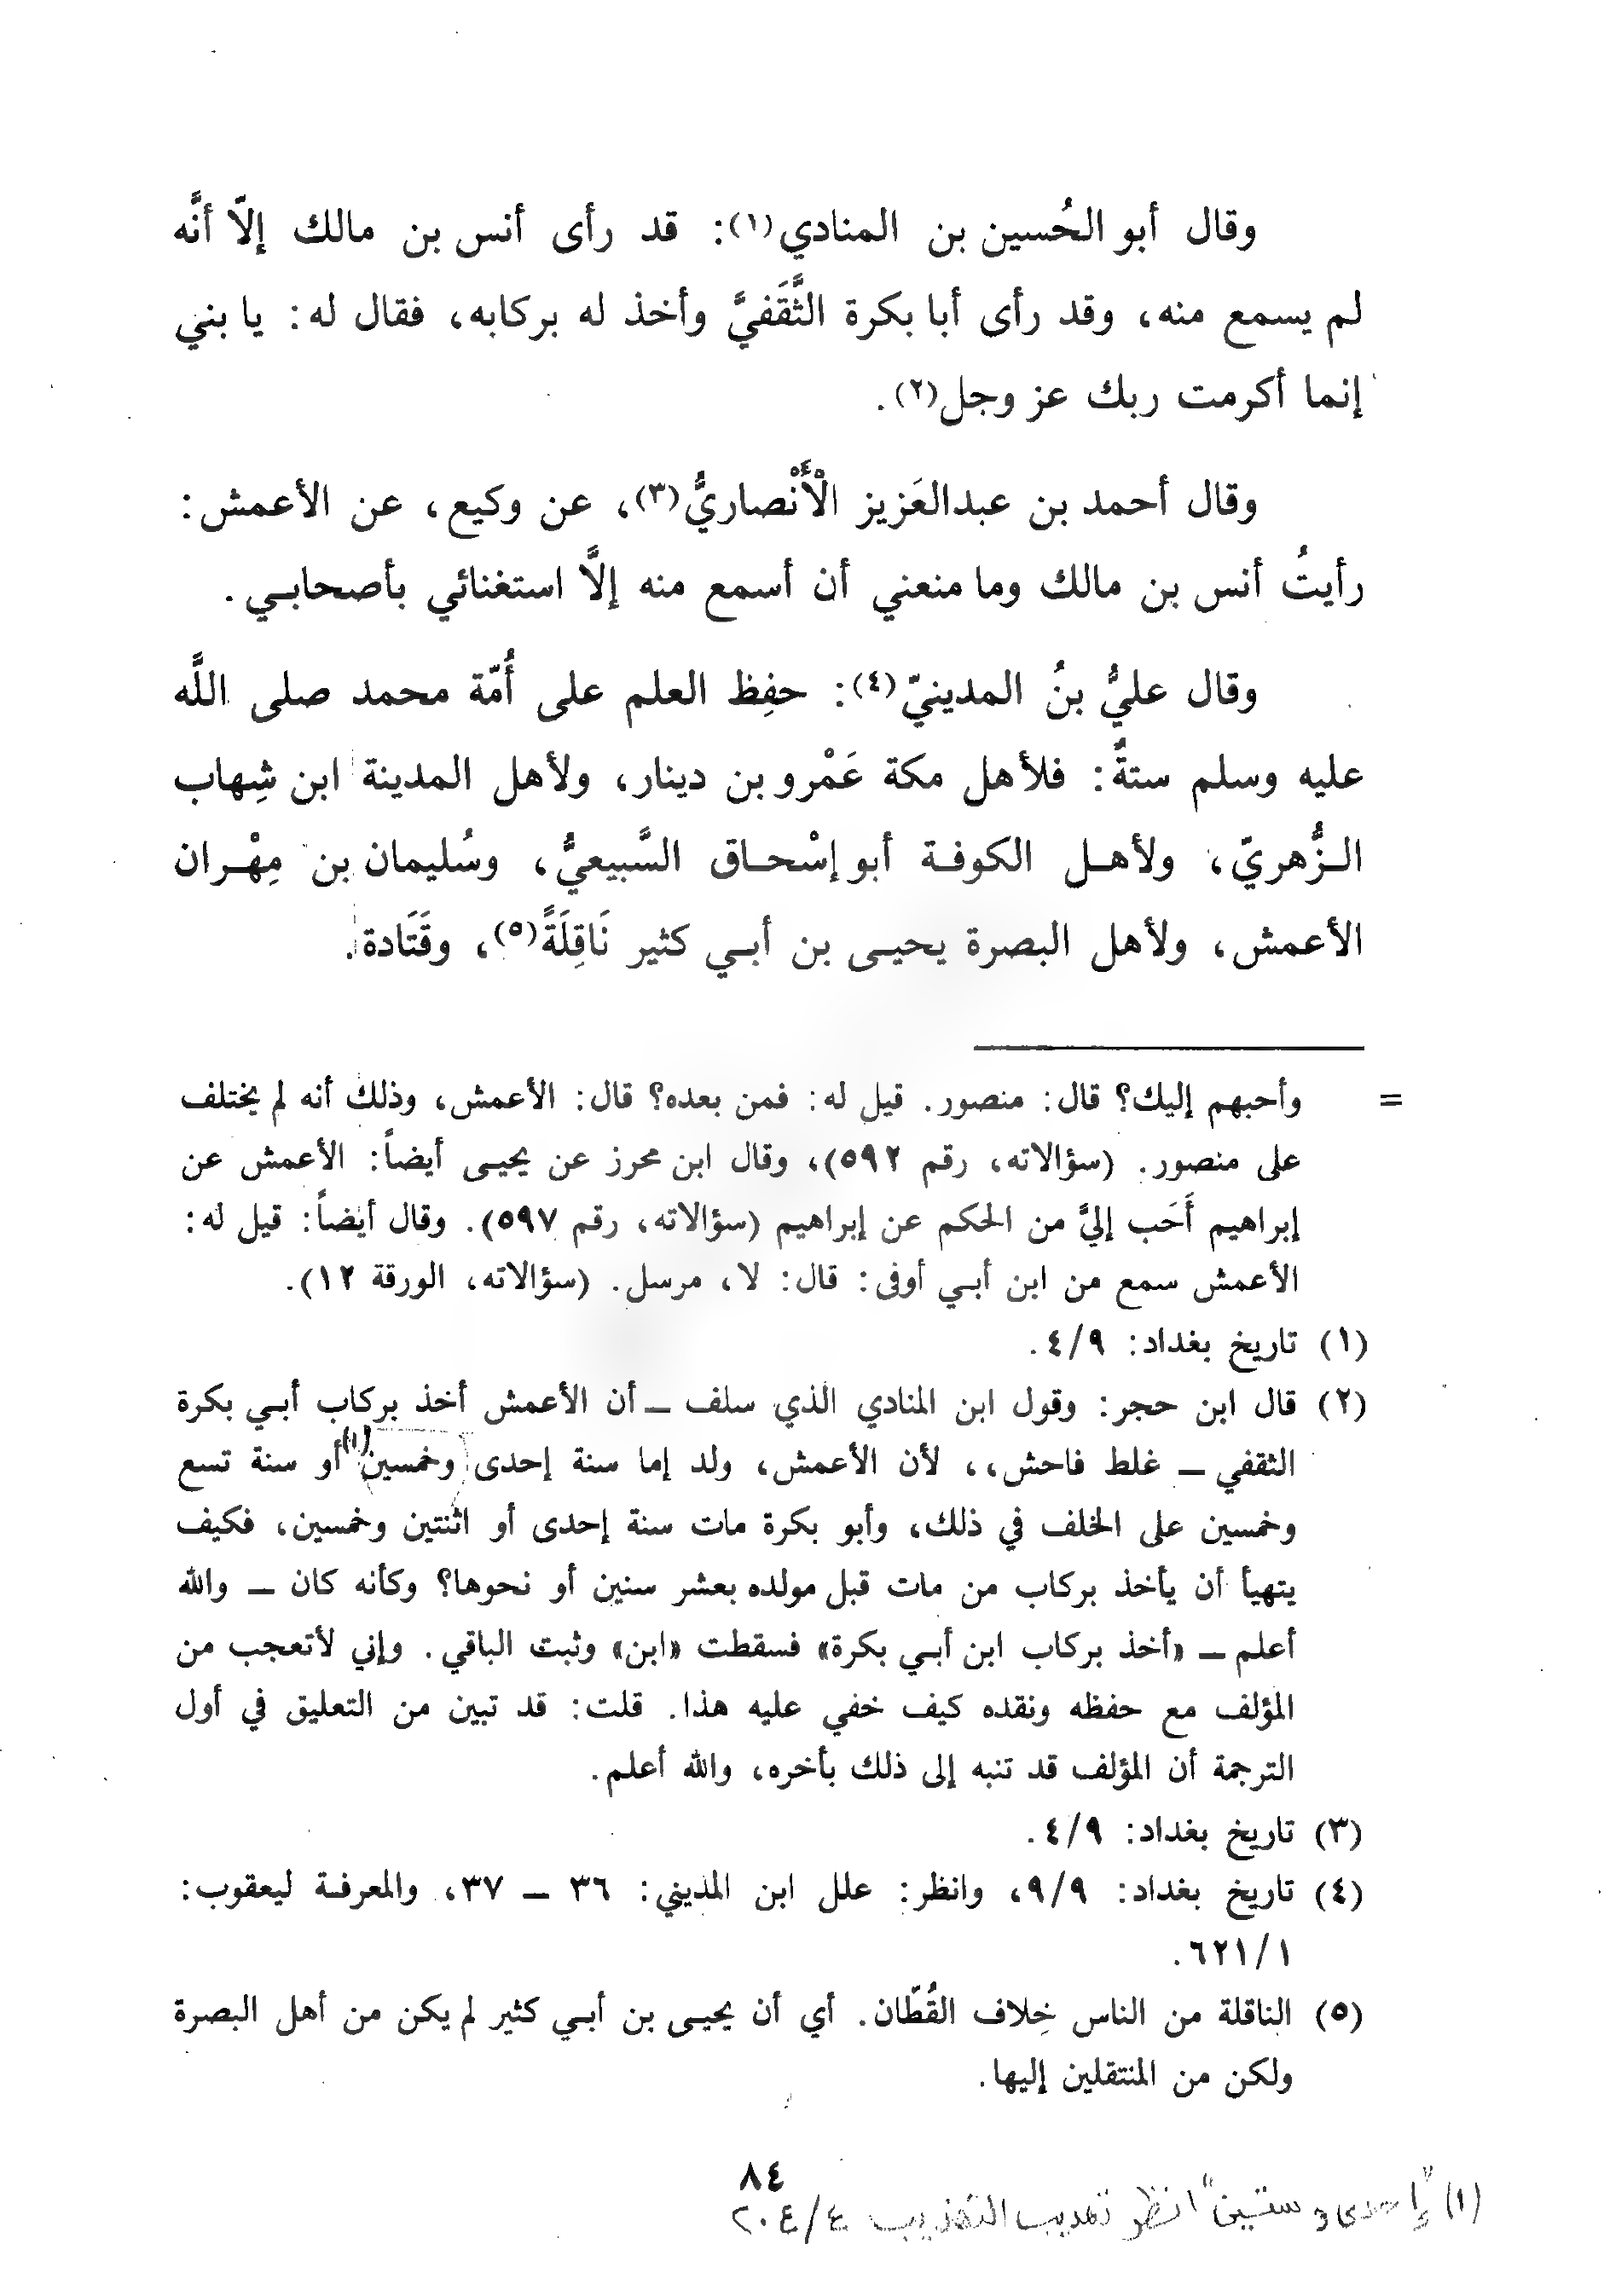 وقال أبو الحُسين بن المنادي(١): قد رأى أنس بن مالك إلاّ أنَّه
لم يسمع منه، وقد رأى أبا بكرة الثَّقَفيَّ وأخذ له بركابه، فقال له: يا بني
إنما أكرمت ربك عز وجل(٢).
وقال أحمد بن عبدالعَزيز الْأَنْصاريُّ(٣)، عن وكيع، عن الأعمش:
رأيتُ أنس بن مالك وما منعني أن أسمع منه إلاَّ استغنائي بأصحابي.
وقال عليُّ بنُ المدينيّ(٤): حفِظ العلم على أُمّة محمد صلى اللَّه
عليه وسلم ستةٌ: فلأهل مكة عَمْرو بن دينار، ولأهل المدينة ابن شِهاب
الزُّهريّ، ولأهل الكوفة أبو إسْحاق السَّبيعيُّ، وسُليمان بن مِهْران
الأعمش، ولأهل البصرة يحيى بن أبي كثير نَاقِلَةً(٥)، وقَتَادة.
= وأحبهم إليك؟ قال: منصور. قيل له: فمن بعده؟ قال: الأعمش، وذلك أنه لم يختلف
على منصور. (سؤالاته، رقم ٥٩٢)، وقال ابن محرز عن يحيى أيضاً: الأعمش عن
إبراهيم أَحَب إليَّ من الحكم عن إبراهيم (سؤالاته، رقم ٥٩٧). وقال أيضاً: قيل له:
الأعمش سمع من ابن أبي أوفى: قال: لا، مرسل. (سؤالاته، الورقة ١٢).
(١) تاريخ بغداد: ٤/٩.
(٢) قال ابن حجر: وقول ابن المنادي الذي سلف ــ أن الأعمش أخذ بركاب أبي بكرة
الثقفي ــ غلط فاحش،، لأن الأعمش، ولد إما سنة إحدى وخمسين(١) أو سنة تسع
وخمسين على الخلف في ذلك، وأبو بكرة مات سنة إحدى أو اثنتين وخمسين، فكيف
يتهيأ أن يأخذ بركاب من مات قبل مولده بعشر سنين أو نحوها؟ وكأنه كان ــ والله
أعلم ــ «أخذ بركاب ابن أبي بكرة» فسقطت «ابن» وثبت الباقي. وإني لأتعجب من
المؤلف مع حفظه ونقده كيف خفي عليه هذا. قلت: قد تبين من التعليق في أول
الترجمة أن المؤلف قد تنبه إلى ذلك بأخره، والله أعلم.
(٣) تاريخ بغداد: ٤/٩.
(٤) تاريخ بغداد: ٩/٩، وانظر: علل ابن المديني: ٣٦ ــ ٣٧، والمعرفة ليعقوب:
٦٢١/١.
(٥) الناقلة من الناس خِلاف القُطّان. أي أن يحيى بن أبي كثير لم يكن من أهل البصرة
ولكن من المنتقلين إليها.
٨٤
(١) "إحدى وستين" انظر تهذيب التهذيب ٢٠٤/٤